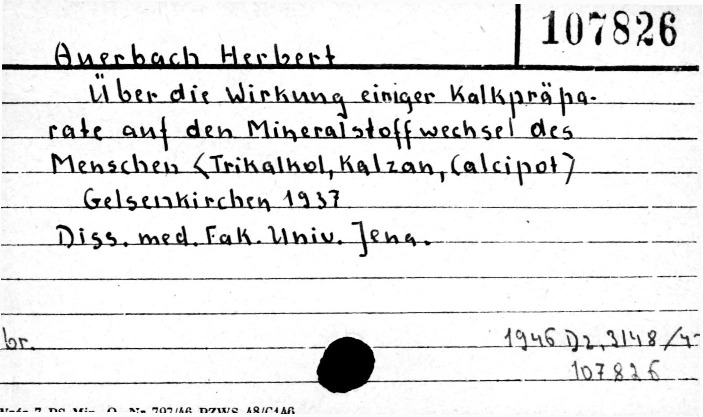 107826
Auerbach Herbert
Über die Wirkung einiger Kalkpräpa-
rate auf den Mineralstoffwechsel des
Menschen (Trikalkol, Kalzan, Calcipot)
Gelsenkirchen 1937
Diss. med. Fak. Univ. Jena.
br.
1946 D2, 3148/4-
107826
7 PS Min. O. Nr 797/46 PZWS A8/C1A6